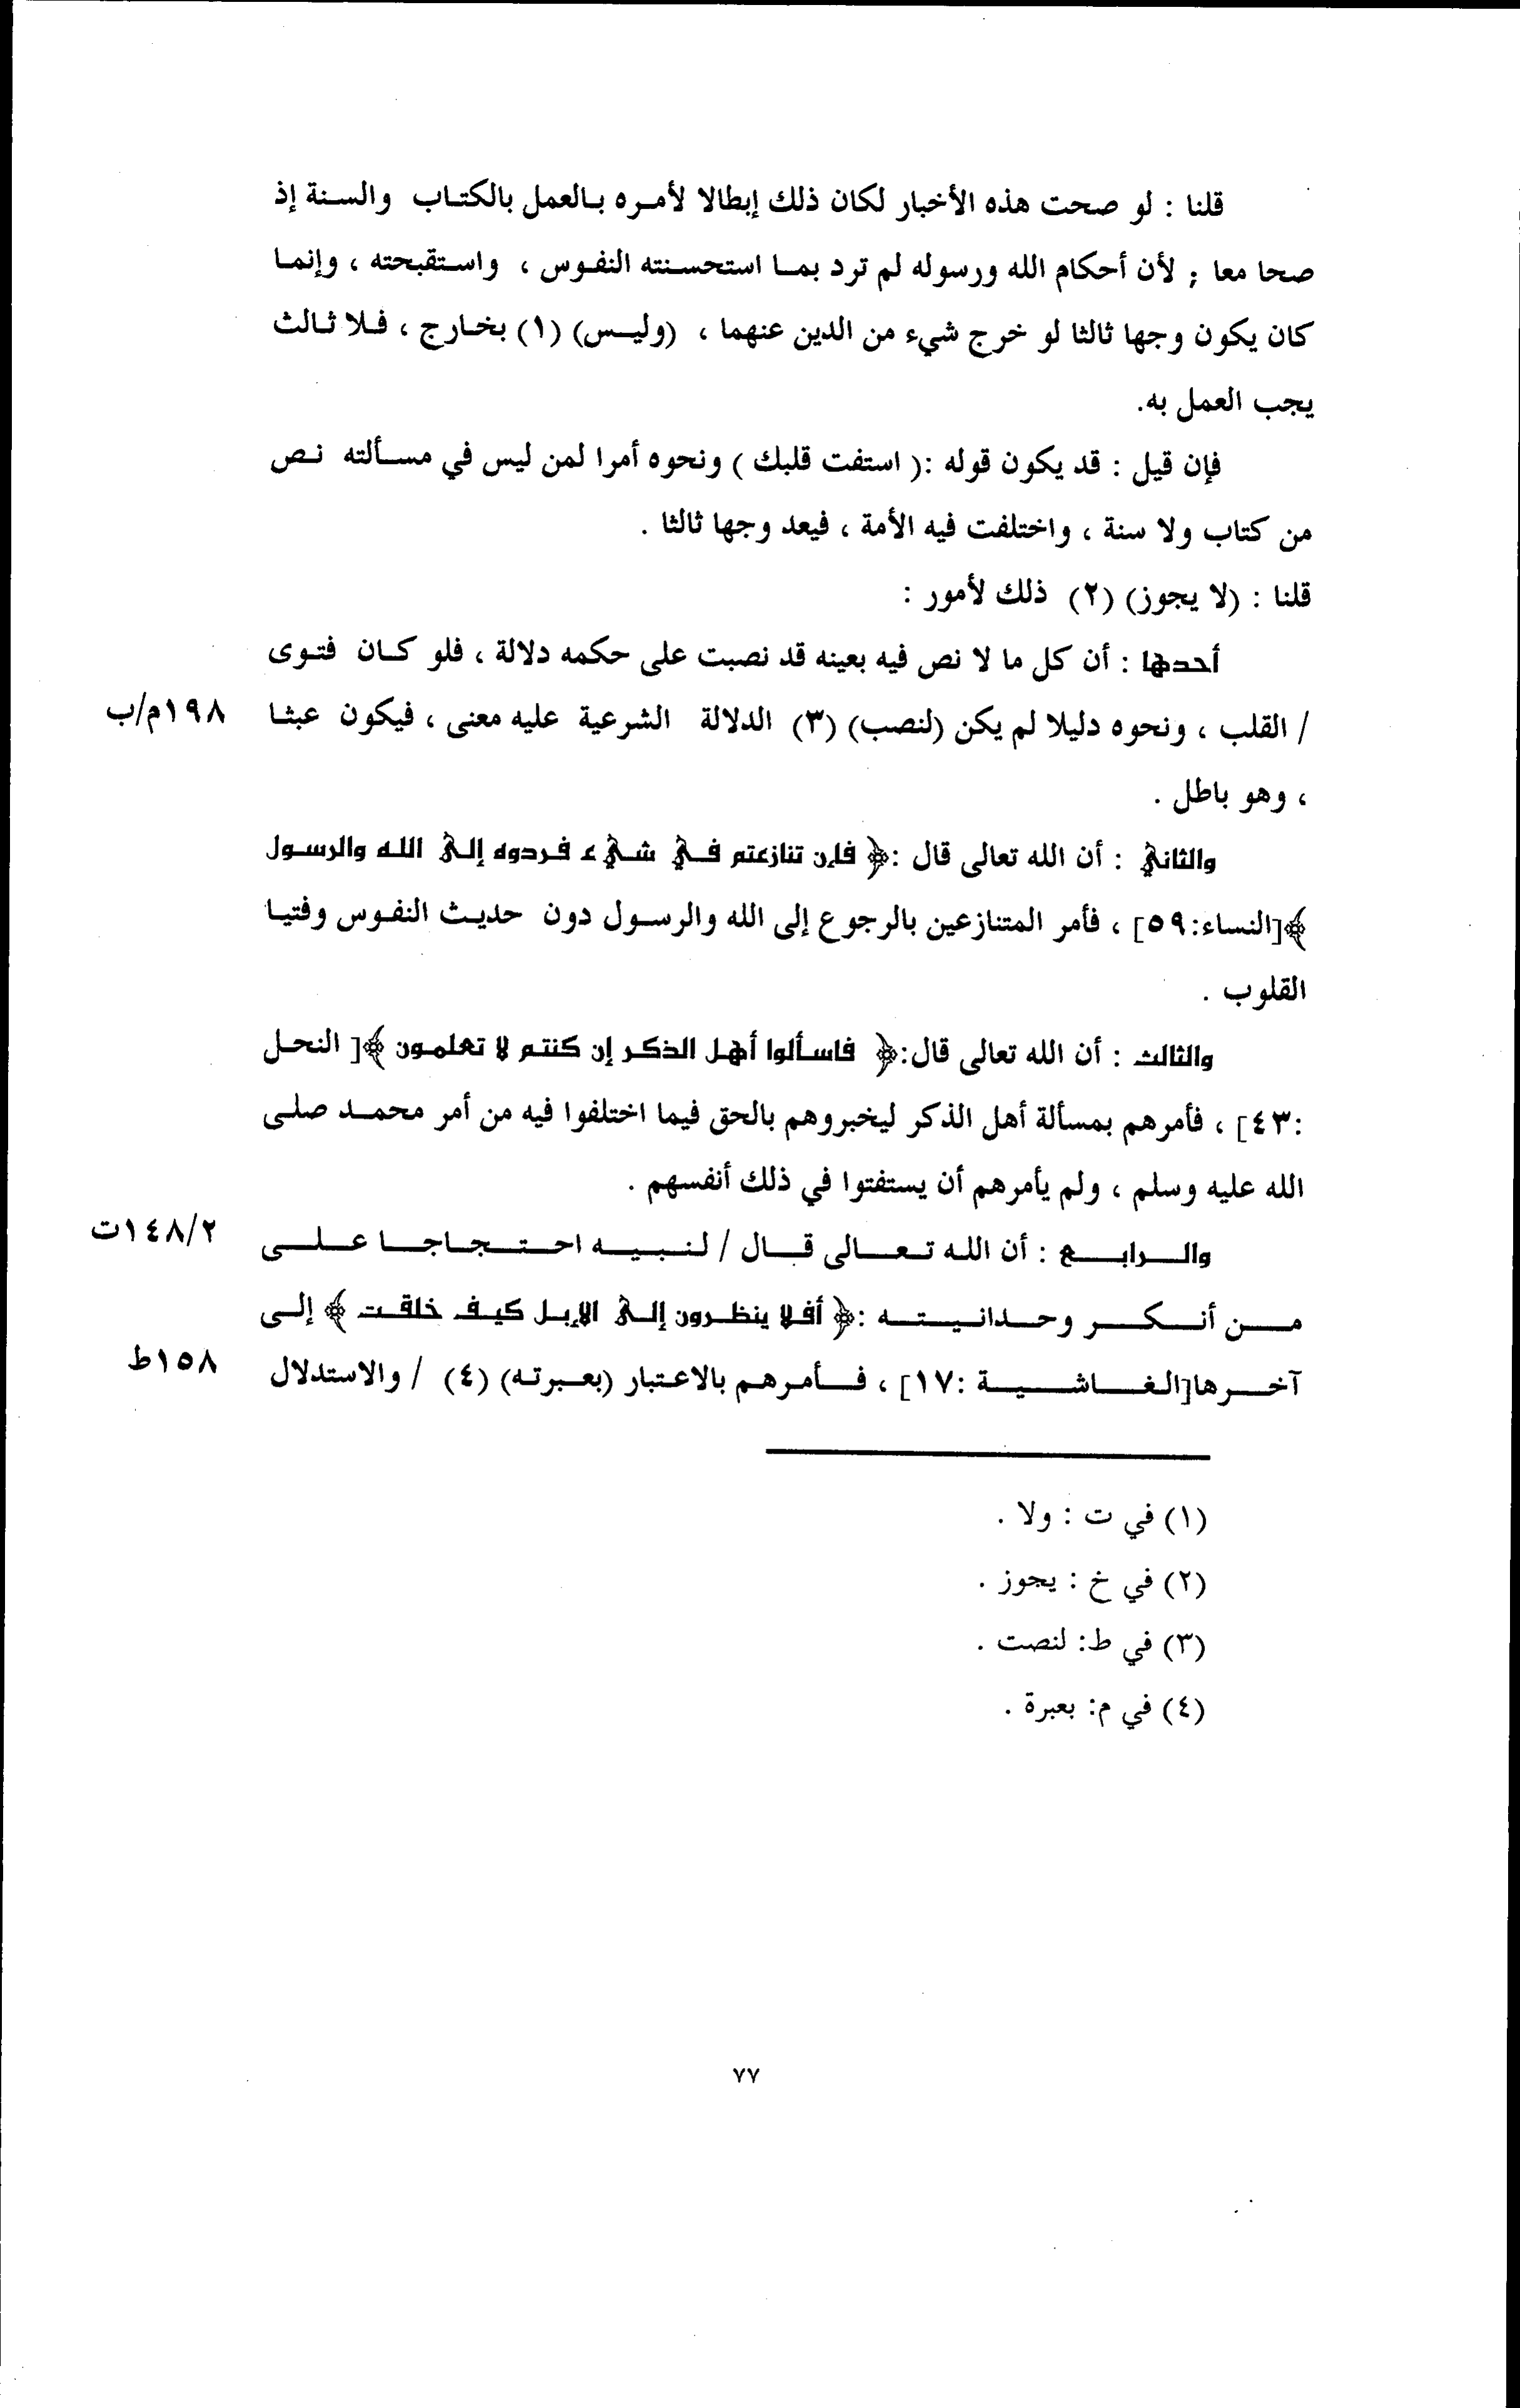 قلنا : لو صحت هذه الأخبار لكان ذلك إبطالا لأمره بالعمل بالكتاب والسنة إذ
صحا معا ; لأن أحكام الله ورسوله لم ترد بما استحسنته النفوس ، واستقبحته ، وإنما
كان يكون وجها ثالثا لو خرج شيء من الدين عنهما ، (وليس) (١) بخارج ، فلا ثالث
يجب العمل به.
فإن قيل : قد يكون قوله :( استفت قلبك ) ونحوه أمرا لمن ليس في مسألته نص
من كتاب ولا سنة ، واختلفت فيه الأمة ، فيعد وجها ثالثا .
قلنا : (لا يجوز) (٢) ذلك لأمور :
أحدها : أن كل ما لا نص فيه بعينه قد نصبت على حكمه دلالة ، فلو كان فتوى
/ القلب ، ونحوه دليلا لم يكن (لنصب) (٣) الدلالة الشرعية عليه معنى ، فيكون عبثا ١٩٨م/ب
، وهو باطل .
والثاني : أن الله تعالى قال :﴿ فإن تنازعتم في شيء فردوه إلى الله والرسول
﴾[النساء:٥٩] ، فأمر المتنازعين بالرجوع إلى الله والرسول دون حديث النفوس وفتيا
القلوب .
والثالث : أن الله تعالى قال:﴿ فاسألوا أهل الذكر إن كنتم لا تعلمون ﴾[ النحل
:٤٣] ، فأمرهم بمسألة أهل الذكر ليخبروهم بالحق فيما اختلفوا فيه من أمر محمد صلى
الله عليه وسلم ، ولم يأمرهم أن يستفتوا في ذلك أنفسهم .
والرابع : أن الله تعالى قال / لنبيه احتجاجا على ١٤٨/٢ت
من أنكر وحدانيته :﴿ أفلا ينظرون إلى الإبل كيف خلقت ﴾ إلى
آخرها[الغاشية :١٧] ، فأمرهم بالاعتبار (بعبرته) (٤) / والاستدلال ١٥٨ط
(١) في ت : ولا .
(٢) في خ : يجوز .
(٣) في ط: لنصت .
(٤) في م: بعبرة .
٧٧